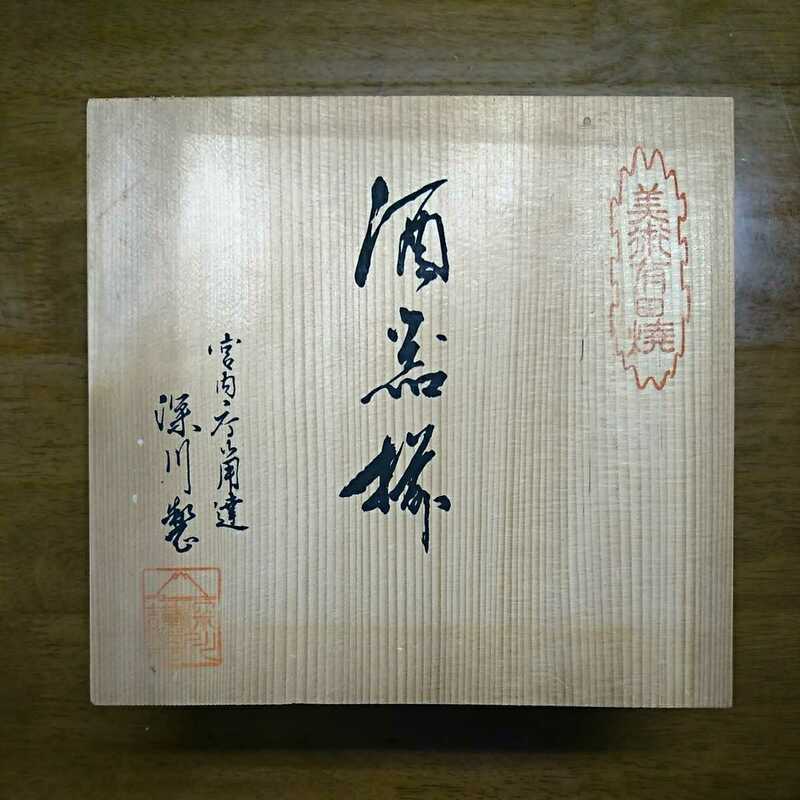 美術有田焼
酒器揃
宮内庁御用達
深川製